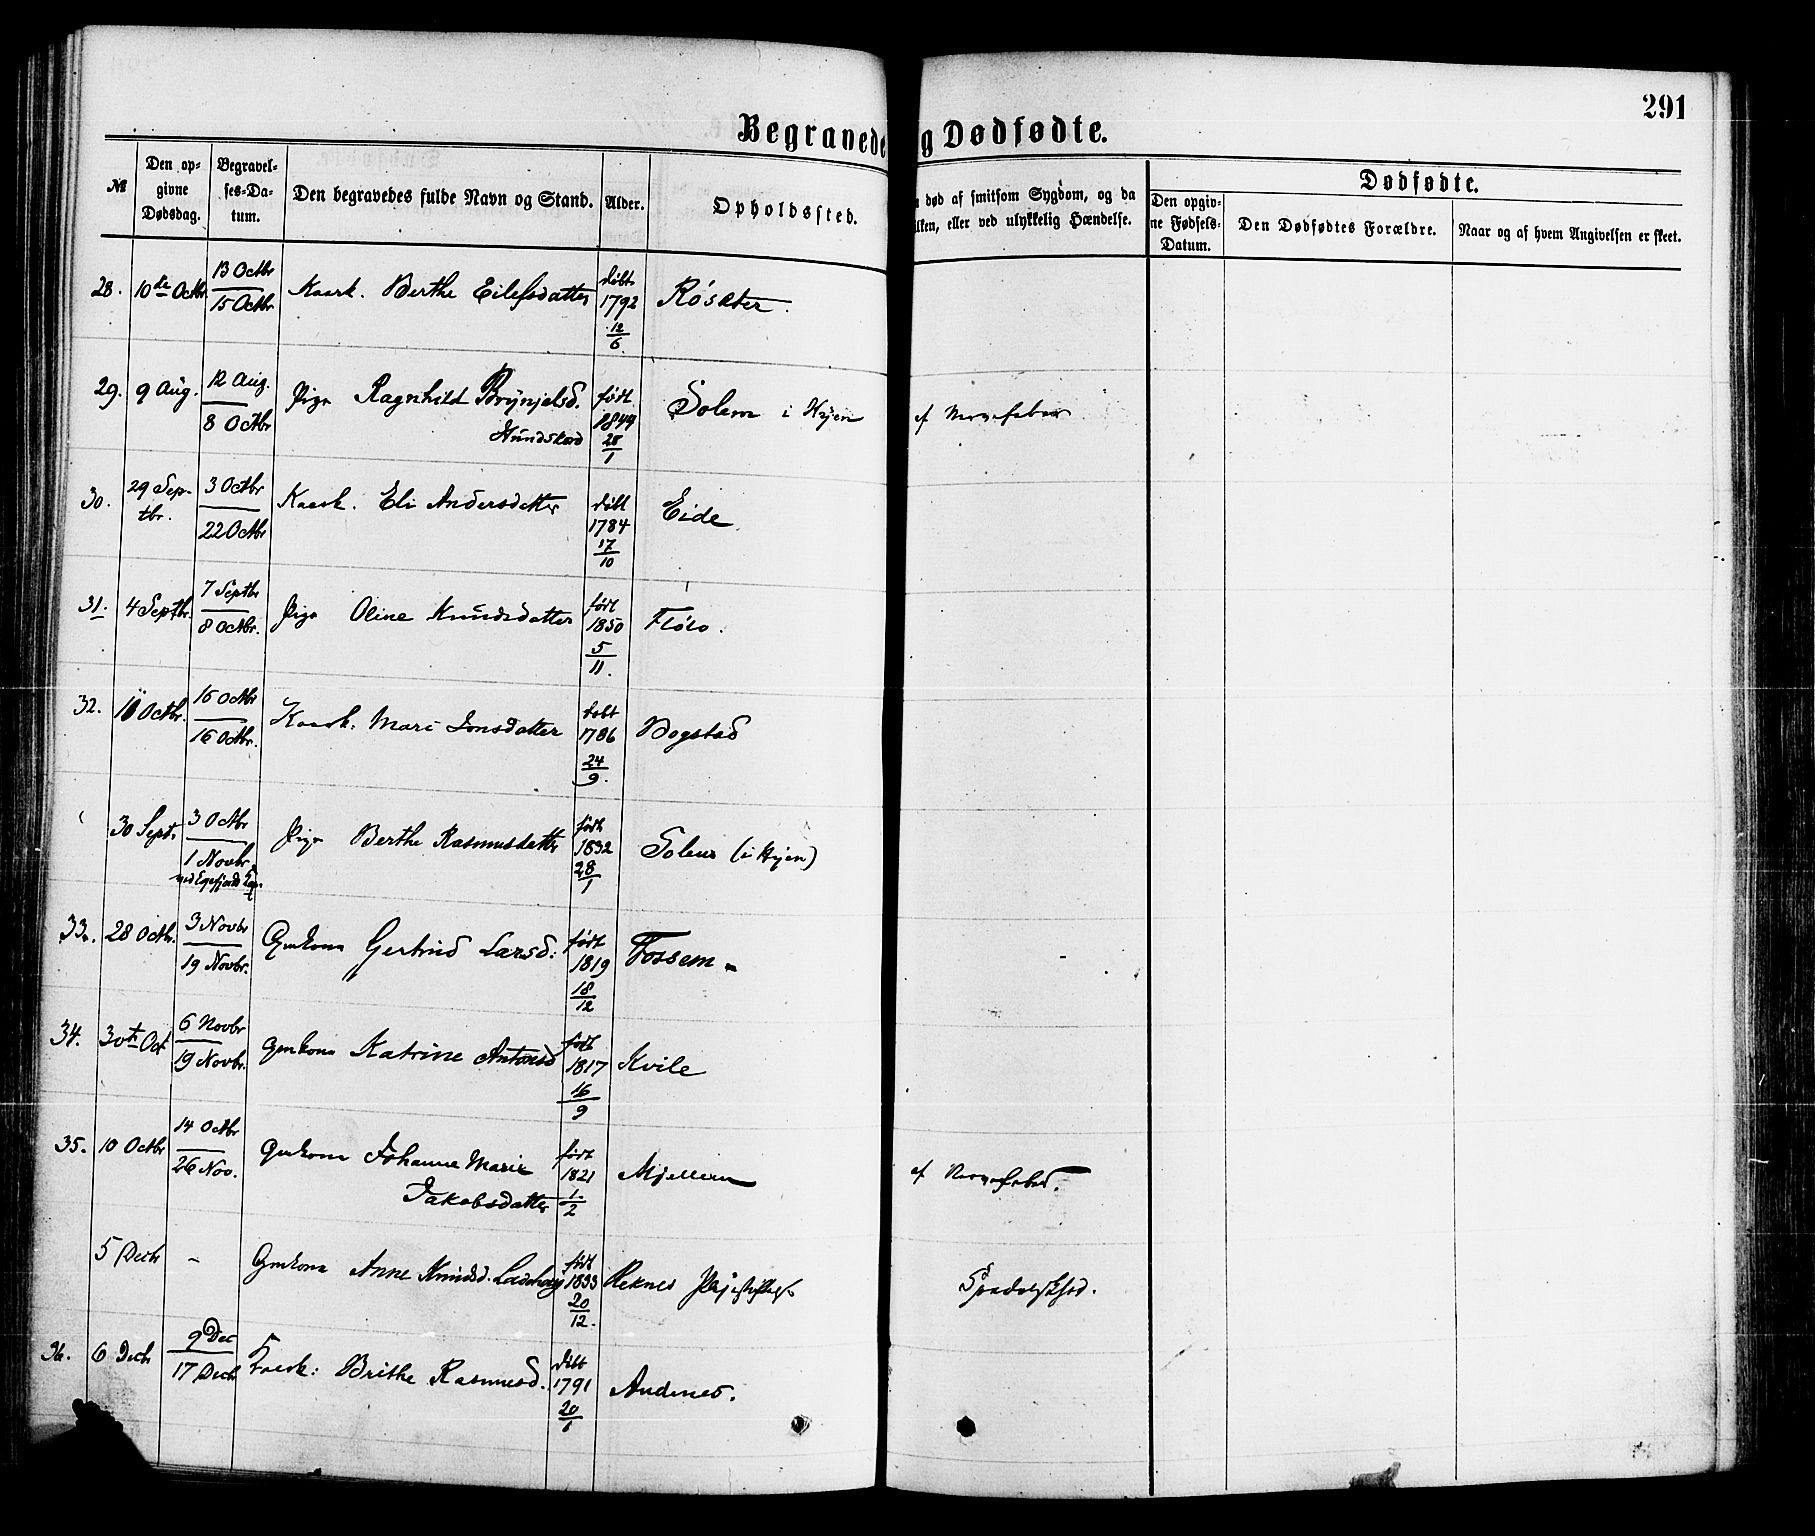 291
Begravede og Dødfødte.
№
Den opgivne Dødsdag.
Begravelses-Datum.
Den begravedes fulde Navn og Stand.
Alder.
Opholdssted.
død af smitsom Sygdom, og da
eller ved ulykkelig Hændelse.
Dødfødte.
Den opgivne Fødsels-Datum.
Den Dødfødtes Forældre.
Naar og af hvem Angivelsen er skeet.
28. 10de Octbr 13 Octbr 15 Octbr Kaark. Berthe Eilefsdatter døbt 1792 12/6. Røsæter.
29. 9 Aug. 12 Aug. 8 Octbr Pige Ragnhild Brynjelsd. født 1849 28/1 Solem i Hyen
30. 29 Septbr. 3 Octbr 22 Octbr Kaark. Eli Andersdatter døbt 1784 17/10 Eide.
31. 4 Septbr. 7 Septbr 8 Octbr. Pige Oline Knudsdatter født 1850 5/11. Florø.
32. Octbr. 15 Octbr 16 Octbr. Kaark. Mari Jonsdatter døbt 1786 24/9. Bogstad
30 Sept. 3 Octbr 1 Novbr Pige Berthe Rasmusdatter født 1832 28/1 Solem (i Hyen)
33. 28 Octbr. 3 Novbr 19 Novbr. Gmkona Gertrud Larsd: født 1819 18/12 Fossem
34. 30te Oct 6 Novbr 19 Novbr. Gmkona Katrine Antonsd født 1817 16/9 Kvile
35. 10 Octbr 14 Octbr 26 Nov. Gmkona Johanne Marie
Jakobsdatter født 1821 1/2
5 Decbr - Gmkona Anne Knudsd. født 1833 20/12. Reknes
36. 6 Decbr 9 Dec 17 Decb Brithe Rasmusd. døbt 1791 20/1 Andenes.